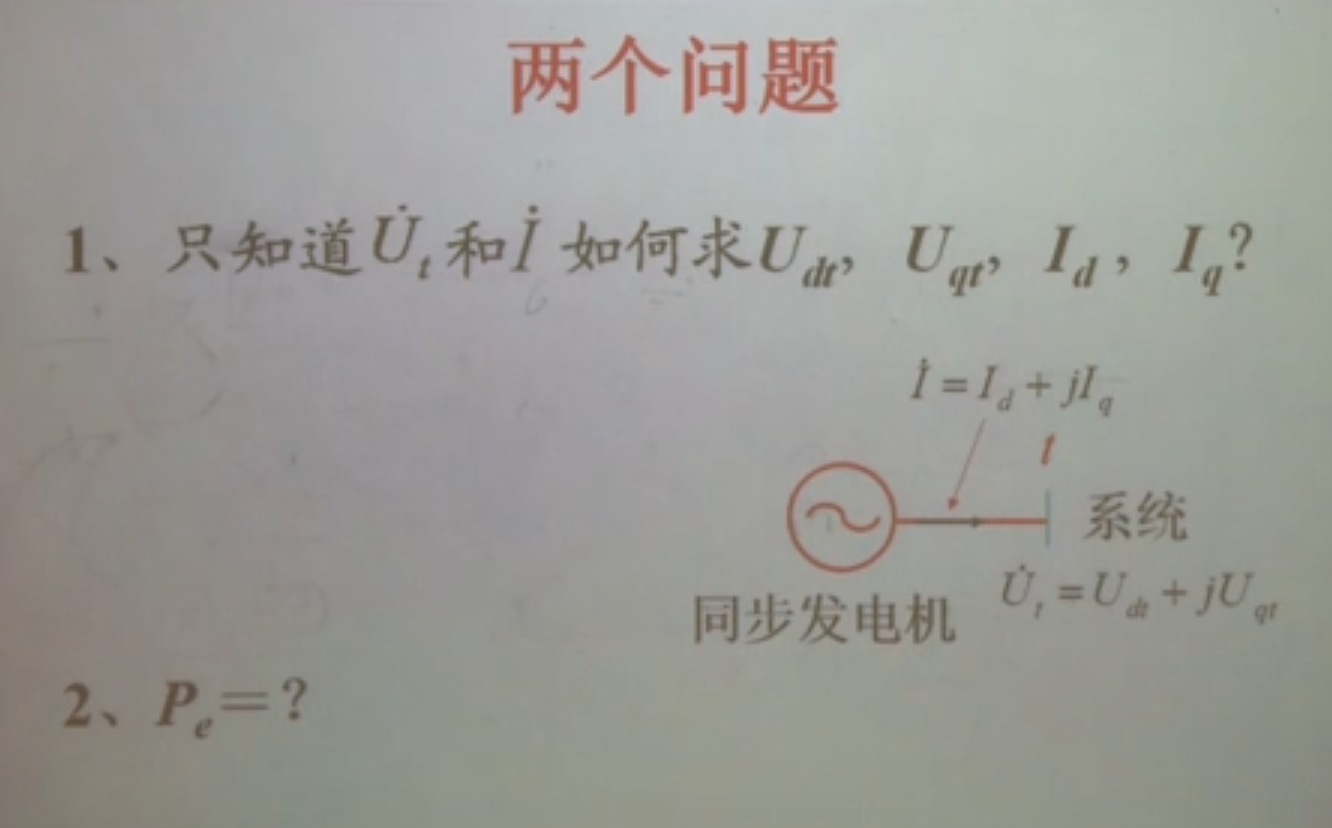 两个问题
1、只知道U̇t和İ 如何求Udt，Uqt，Id，Iq？
İ = Id + jIq
t
系统
同步发电机
U̇t = Udt + jUqt
2、Pe=？